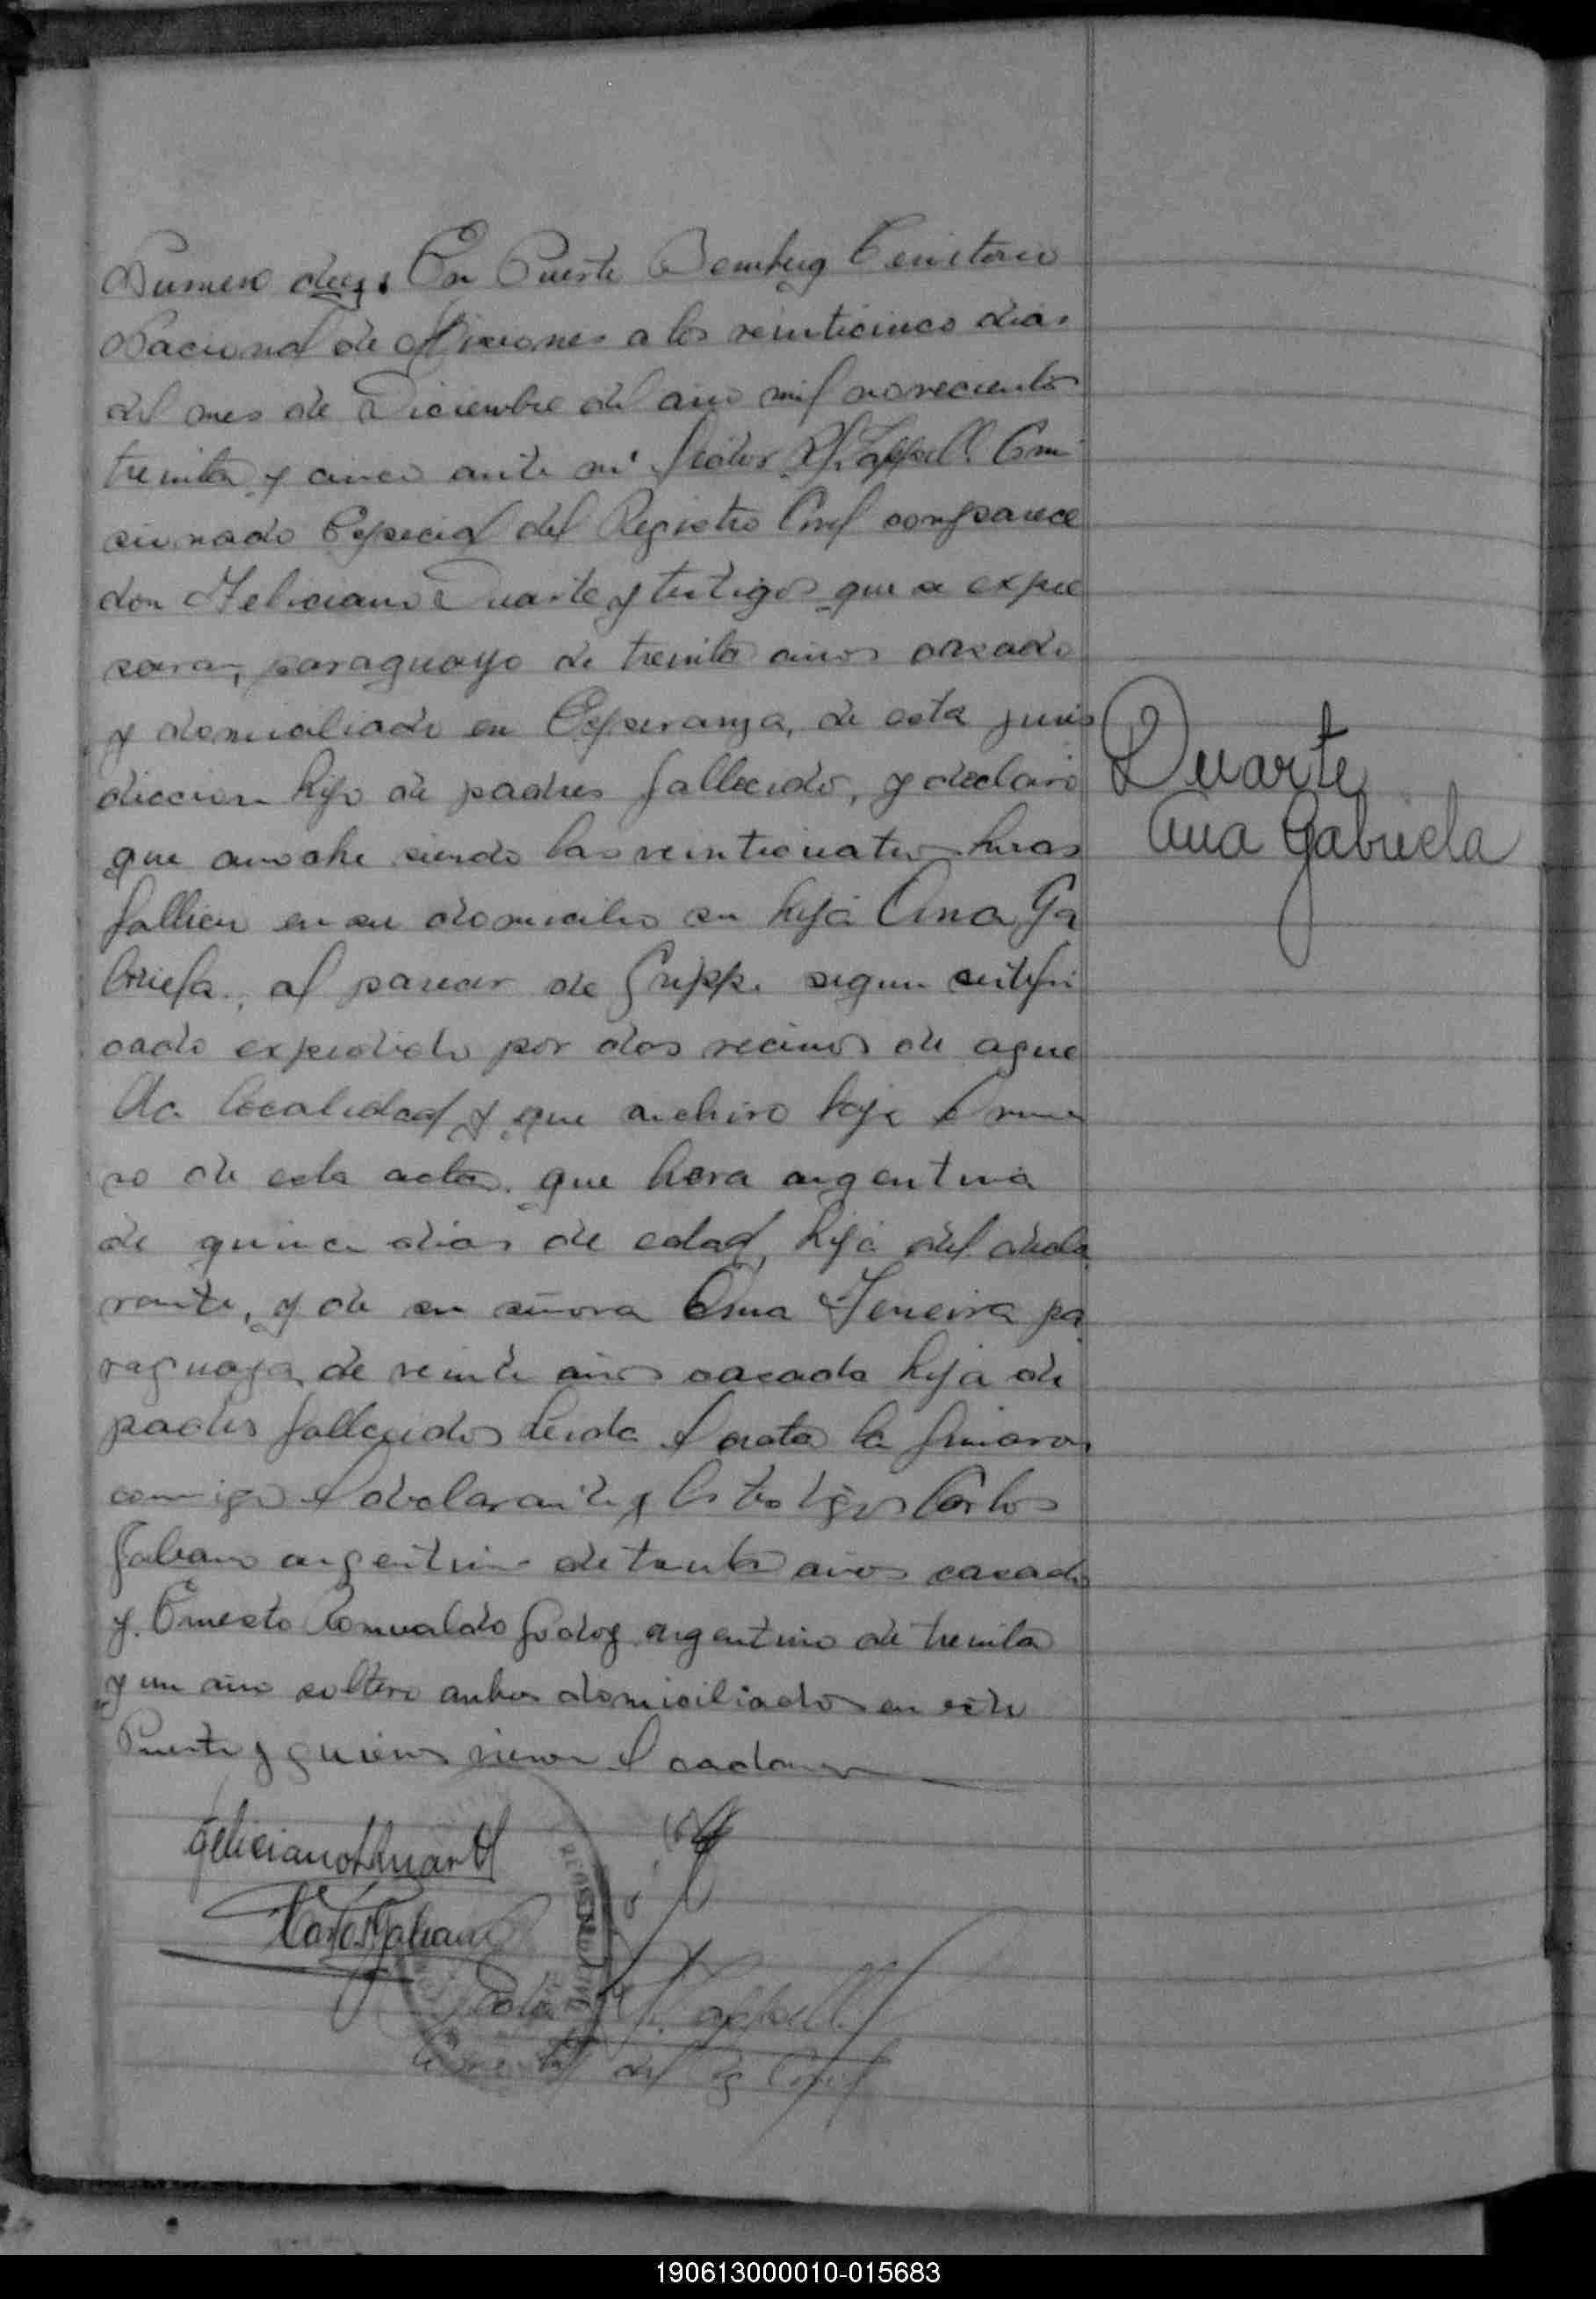 Numero diez. En Puerto Bemberg Territorio
Nacional de Misiones a los veinticinco dias
del mes de Diciembre del año mil novecientos
treinta y cinco ante mi Comi
sionado Especial del Registro Civil comparece
don Feliciano Duarte y testigos que se expre
saran, paraguayo de treinta años casado
y domiciliado en Esperanza, de esta juris
diccion hijo de padres fallecido, y declaró
que anoche siendo las veinticuatro horas
falleció en su domicilio su hija Ana Ga
briela, al parecer de Gripp. segun certifi
cado expedido por dos vecinos de aque
lla localidad y que archivo bajo el nume
ro de esta acta. que hera argentina
de quince dias de edad, hija del decla
rante, y de su señora Ana Fereira pa
raguaya de veinte años casada hija de
padres fallecidos leida el acta la firmaron
conmigo el declarante y los testigos Carlos
Galeano argentino de treinta años casado
y Ernesto Romualdo Godoy argentino de treinta
y un año soltero ambos domiciliados en este
Puerto y quienes vieron el cadaver
Duarte
Ana Gabriela
Feliciano Duarte
Carlos Galeano
del Reg Civil
190613000010-015683